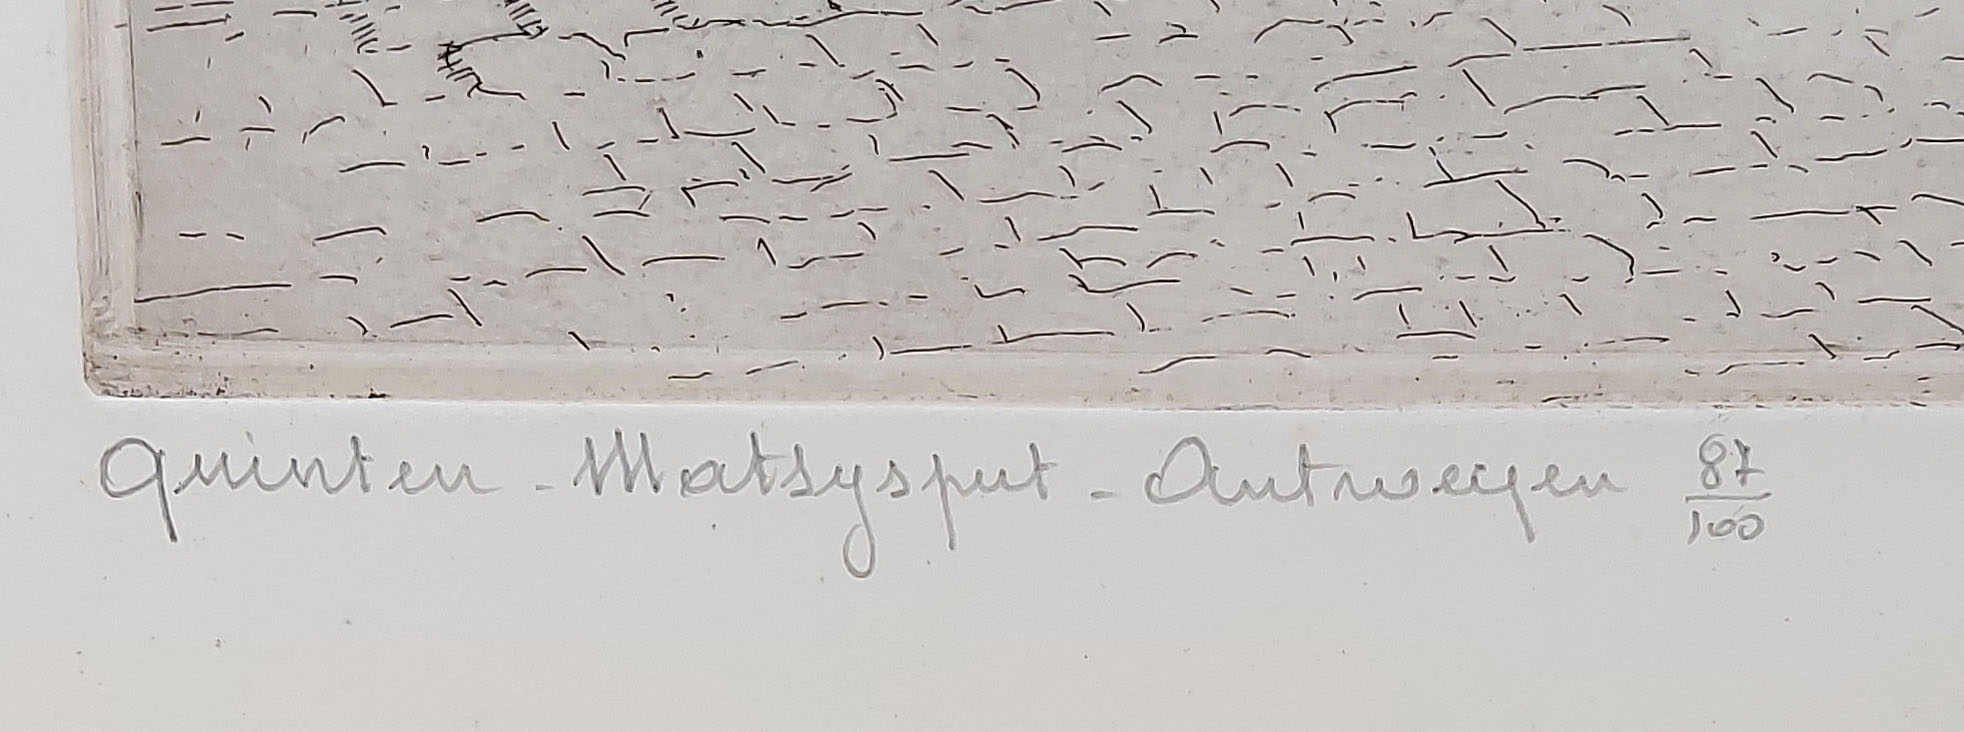 Quinten - Matsysput - Antwerpen 87/100